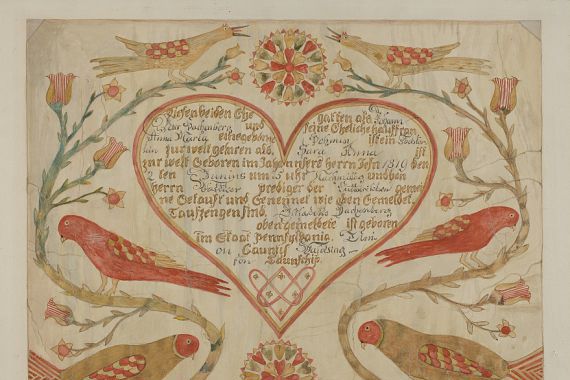 Diesen beiden Ehe gatten als Johann
Peter Dachenberg und seine Eheliche hausfrau
Anna Maria eine geborne ist ein
lein zur welt geboren als Sara Anna ist
zur welt Geboren im Jahr unsers herrn Jesu 1819 den
2 ten Junius um 5 uhr Nachmittag und von
herrn prediger der Lutterischen gemei
ne Getauft und Genennet wie oben Gemeldet.
Taufzeugen sind. Dachenberg
obengemeldete ist geboren
im Staat pennsylvania.
on Caunty
Taunschip.